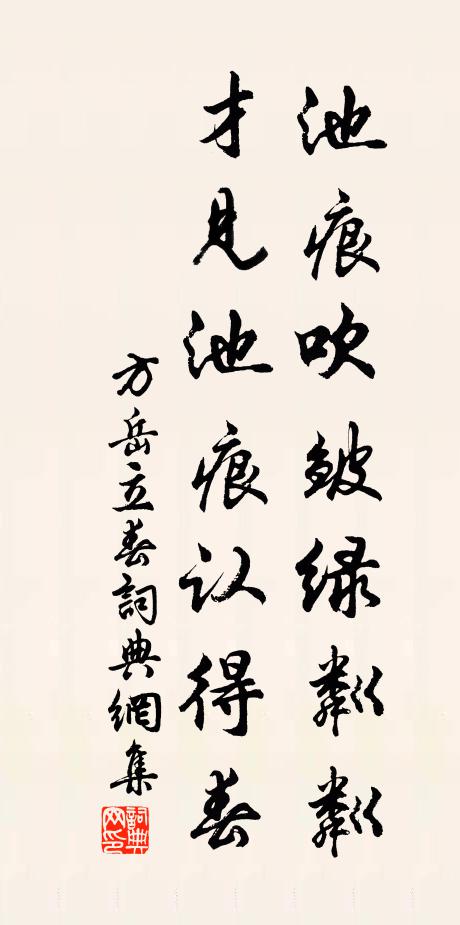 池痕吹皱绿粼粼
才见池痕认得春
方岳立春詞典網集
詞典網印